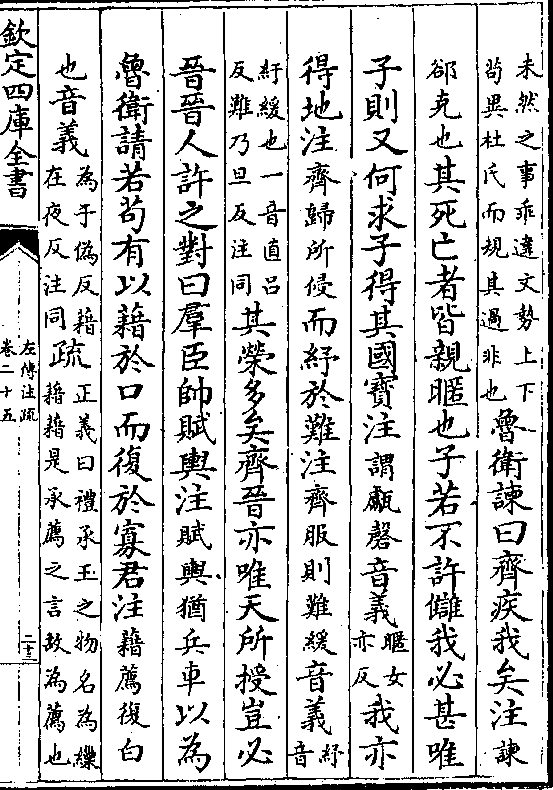 未然之事乖違文勢上下
苟異杜氏而規其過非也
魯衛諫曰齊疾我矣注諫
郤克也其死亡者皆親暱也子若不許讎我必甚唯
子則又何求子得其國寶注謂甗磬音義暱女
亦反
我亦
得地注齊歸所侵而紓於難注齊服則難緩音義紓
音
紓緩也一音直呂
反難乃旦反注同
其榮多矣齊晉亦唯天所授豈必
晉晉人許之對曰羣臣帥賦輿注賦輿猶兵車以為
魯衛請若苟有以藉於口而復於寡君注藉薦復白
也音義為于偽反藉
在夜反注同
疏正義曰禮承玉之物名為繅
藉藉是承薦之言故為薦也
欽定四庫全書
左傳注疏
卷二十五
二十三